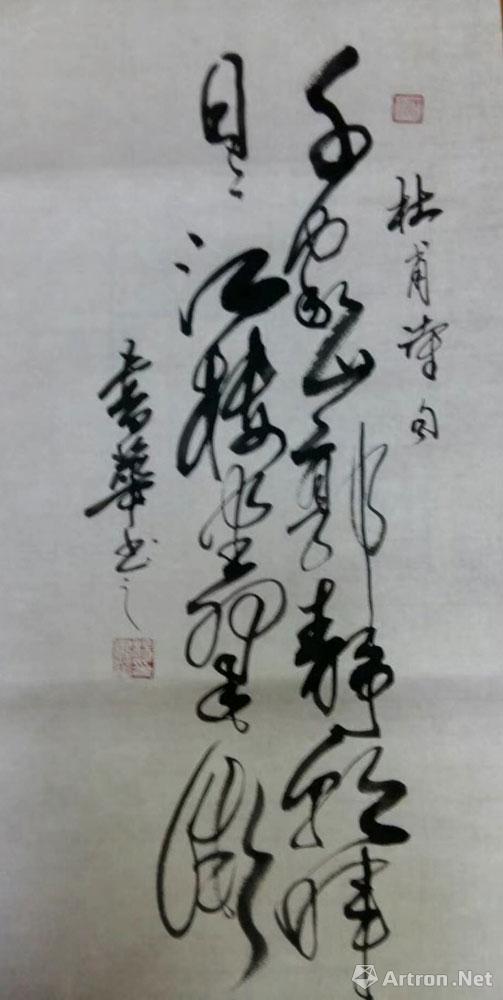 杜甫诗句
千家山郭静朝晖
日々江楼坐翠微
書華书之
Artron.Net